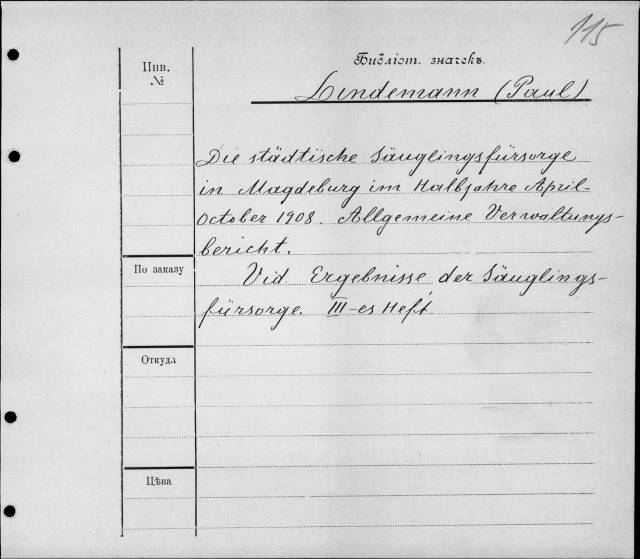 115
Библіот. значекъ.
Инв.
№
Lindemann (Paul)
Die städtische Säuglingsfürsorge
in Magdeburg im Halbjahre April-
October 1908. Allgemeine Verwaltungs-
bericht.
По заказу
Vid Ergebnisse der Säuglings-
fürsorge. III-es Heft
Откуда
Цѣна